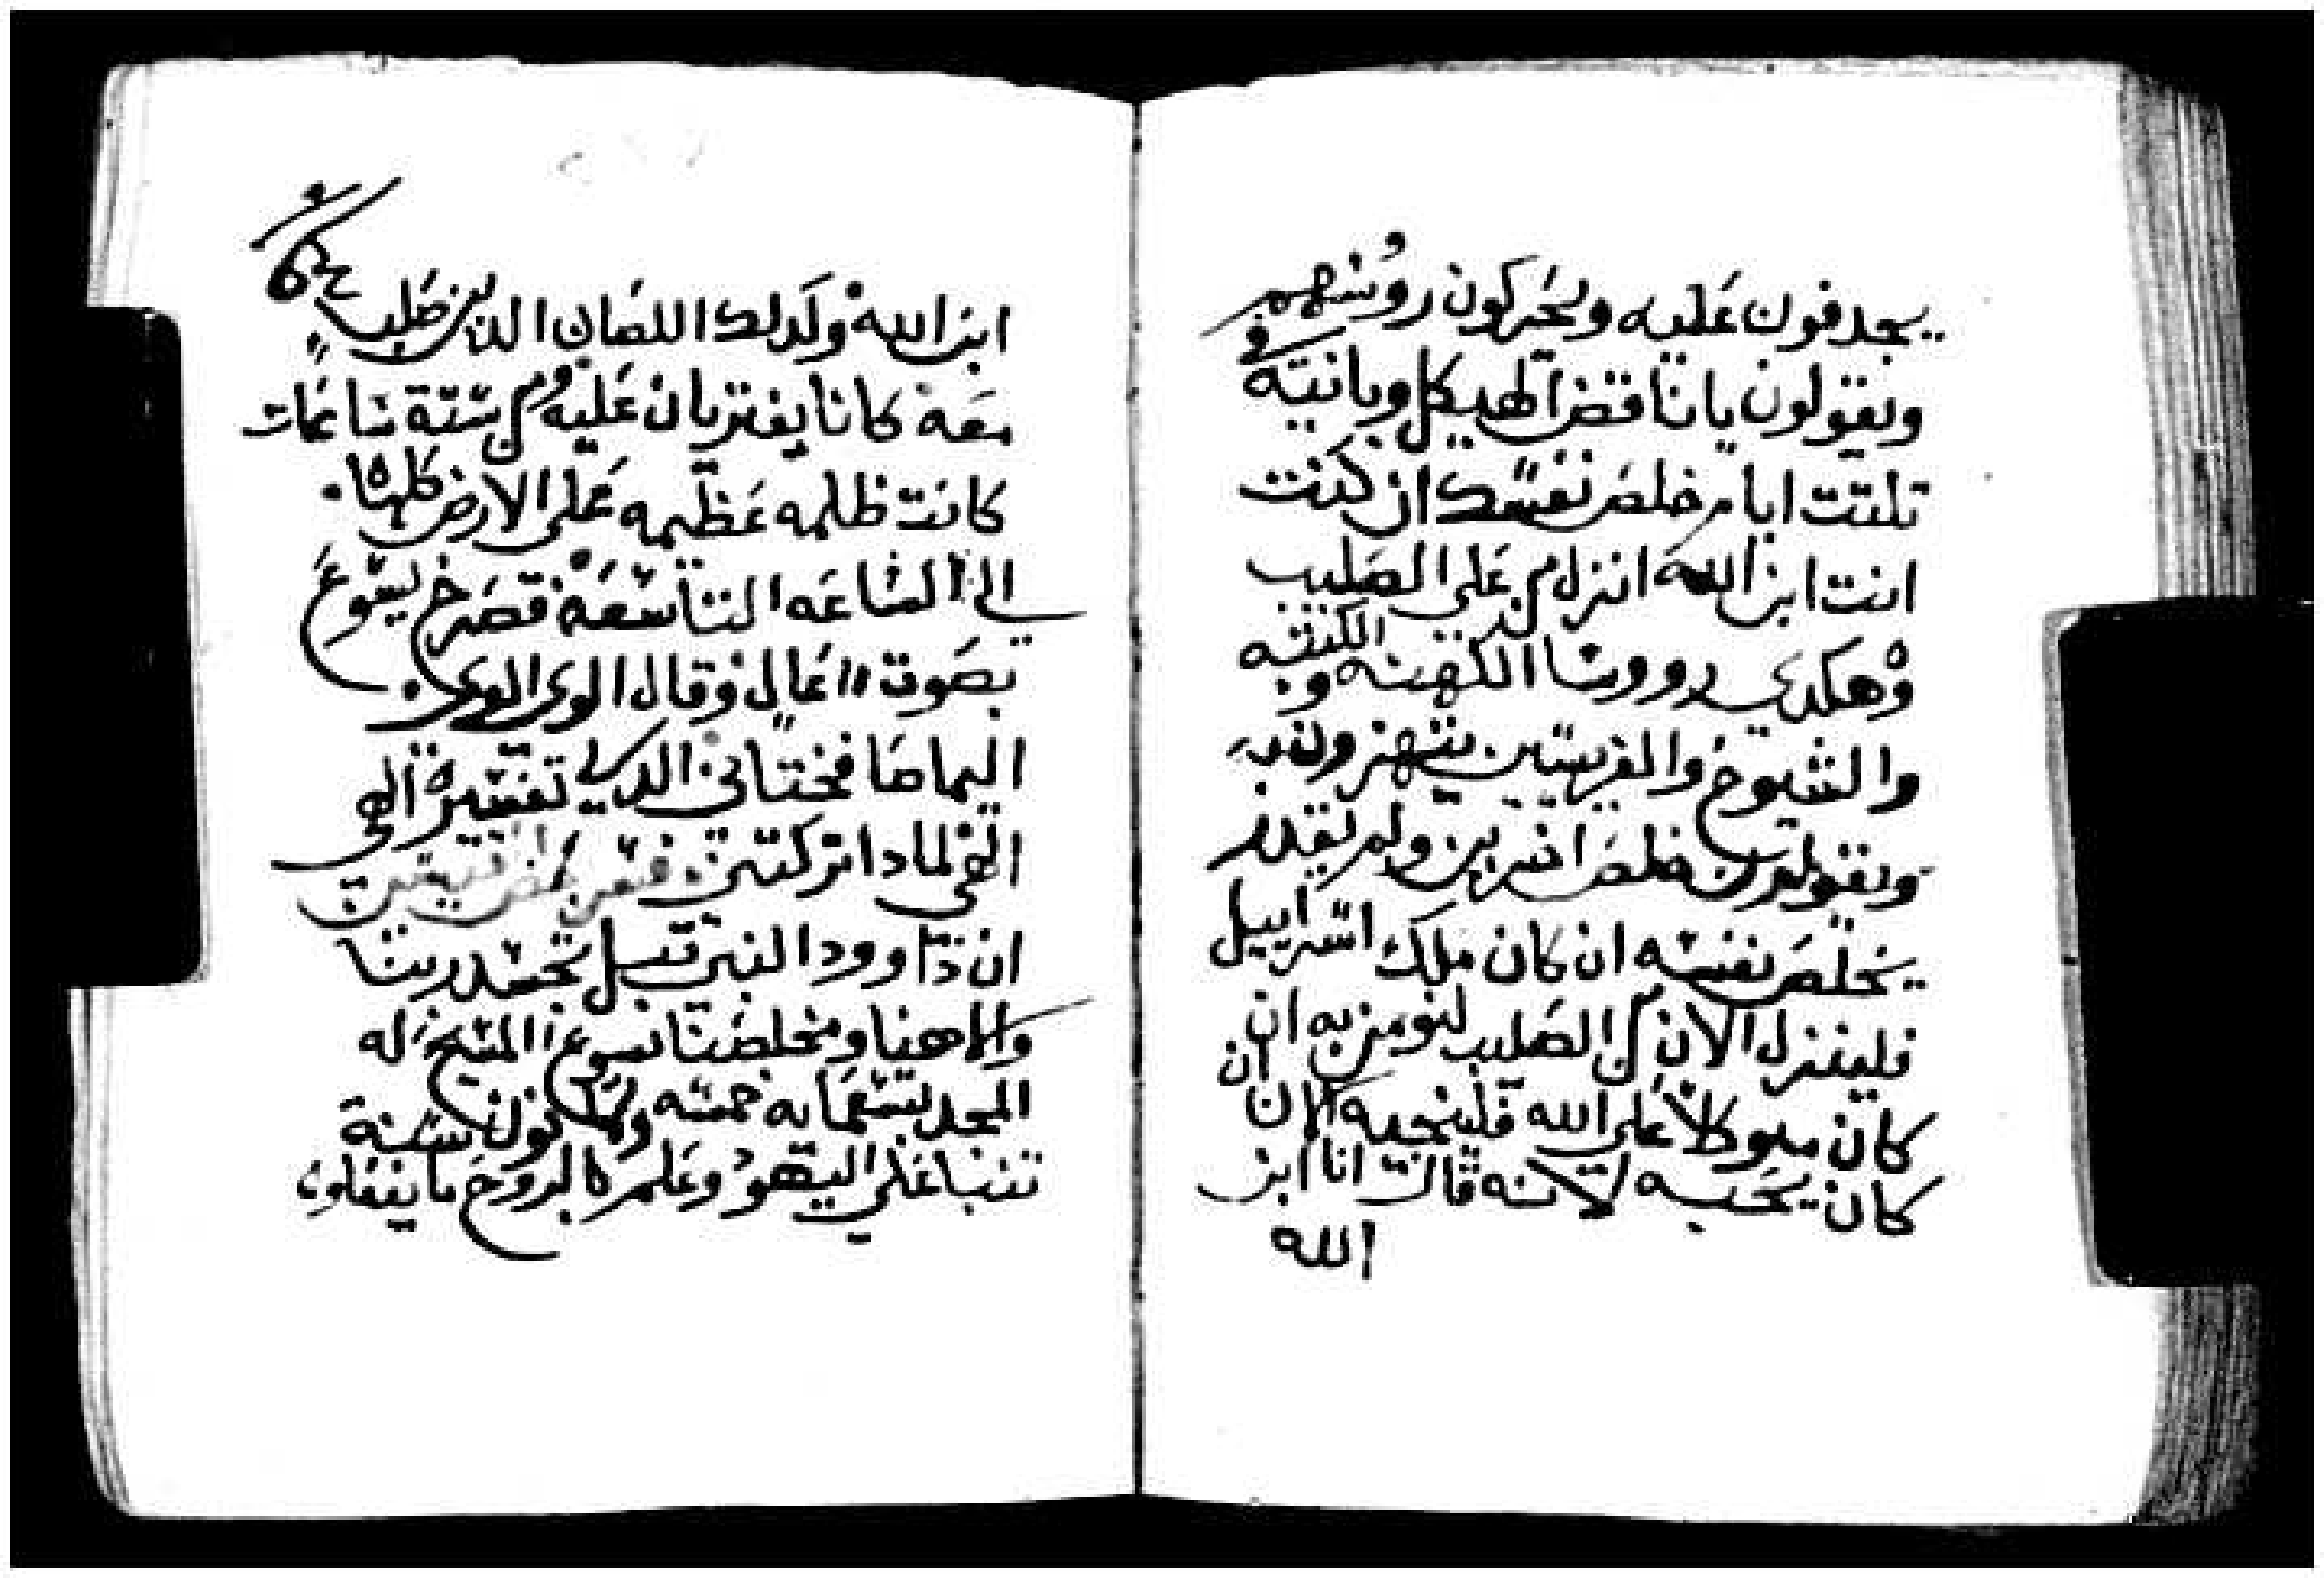 يجدفون عليه ويحركون روسهم
ويقولون يا ناقض الهيكل وبانيه في
تلتت ايام خلص نفسك ان كنت
انت ابن الله انزل من على الصليب
وهكدي رووسا الكهنه والكتبه
والشيوخ والفريسين يتهزون به
ويقولون خلص اخرين ولم يقدر
يخلص نفسه ان كان ملك اسراييل
فلينزل الان من الصليب لنومن به ان
كان متوكلا على الله فلينجيه الان ان
كان يحبه لانه قال انا ابن
الله
ابن الله وكدلك اللصان الدين صلب
معه كانا يفتريان عليه ومن ستة ساعات
كانت ظلمه عظيمه على الارض كلها
الى الساعه التاسعه فصرخ يسوع
بصوت عال وقال الوي الوي
اليما صافختاني الدي تفسيره الهي
الهي لمادا تركتني
ان داوود النبي قبل تجسد ربنا
والاهنا ومخلصنا يسوع المسيح له
المجد بتسعمايه خمسه وتمانون سنة
تنبا على اليهود وعلم بالروح ما يفعلون